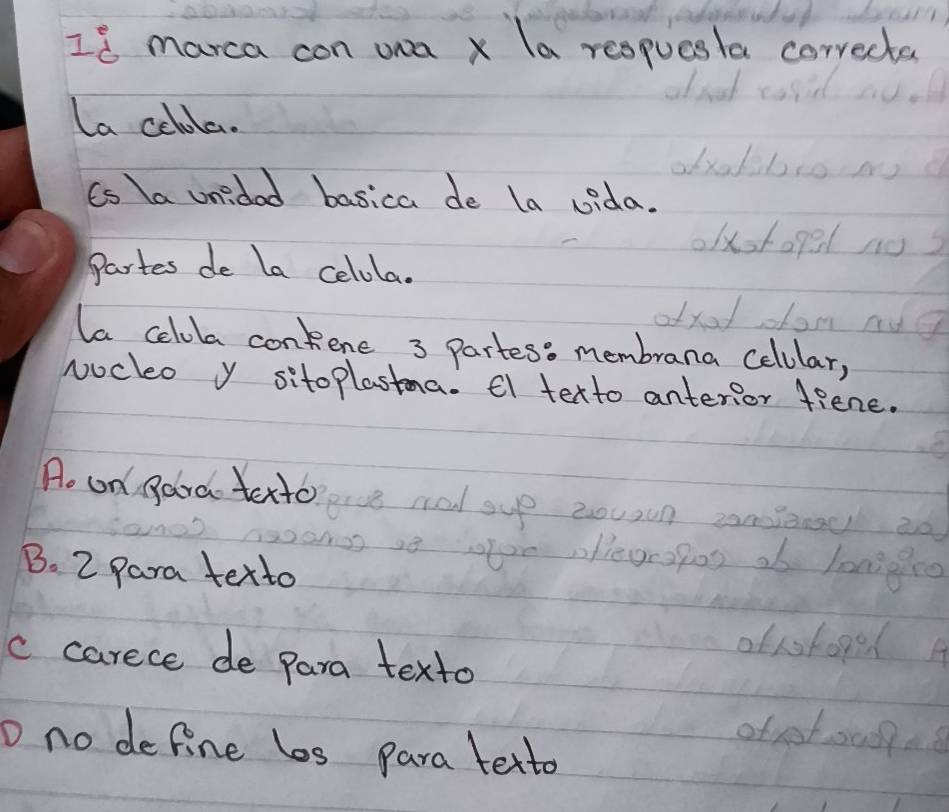 I: marca con una x la respuesta correcta
la celula.
Es la unidad basica de la vida.
Partes de la celula.
la celula contiene 3 partes: membrana celular,
Nucleo y sitoplastma. El texto anterior tiene.
A. un para texto
B. 2 para texto
C carece de para texto
D no define los para texto